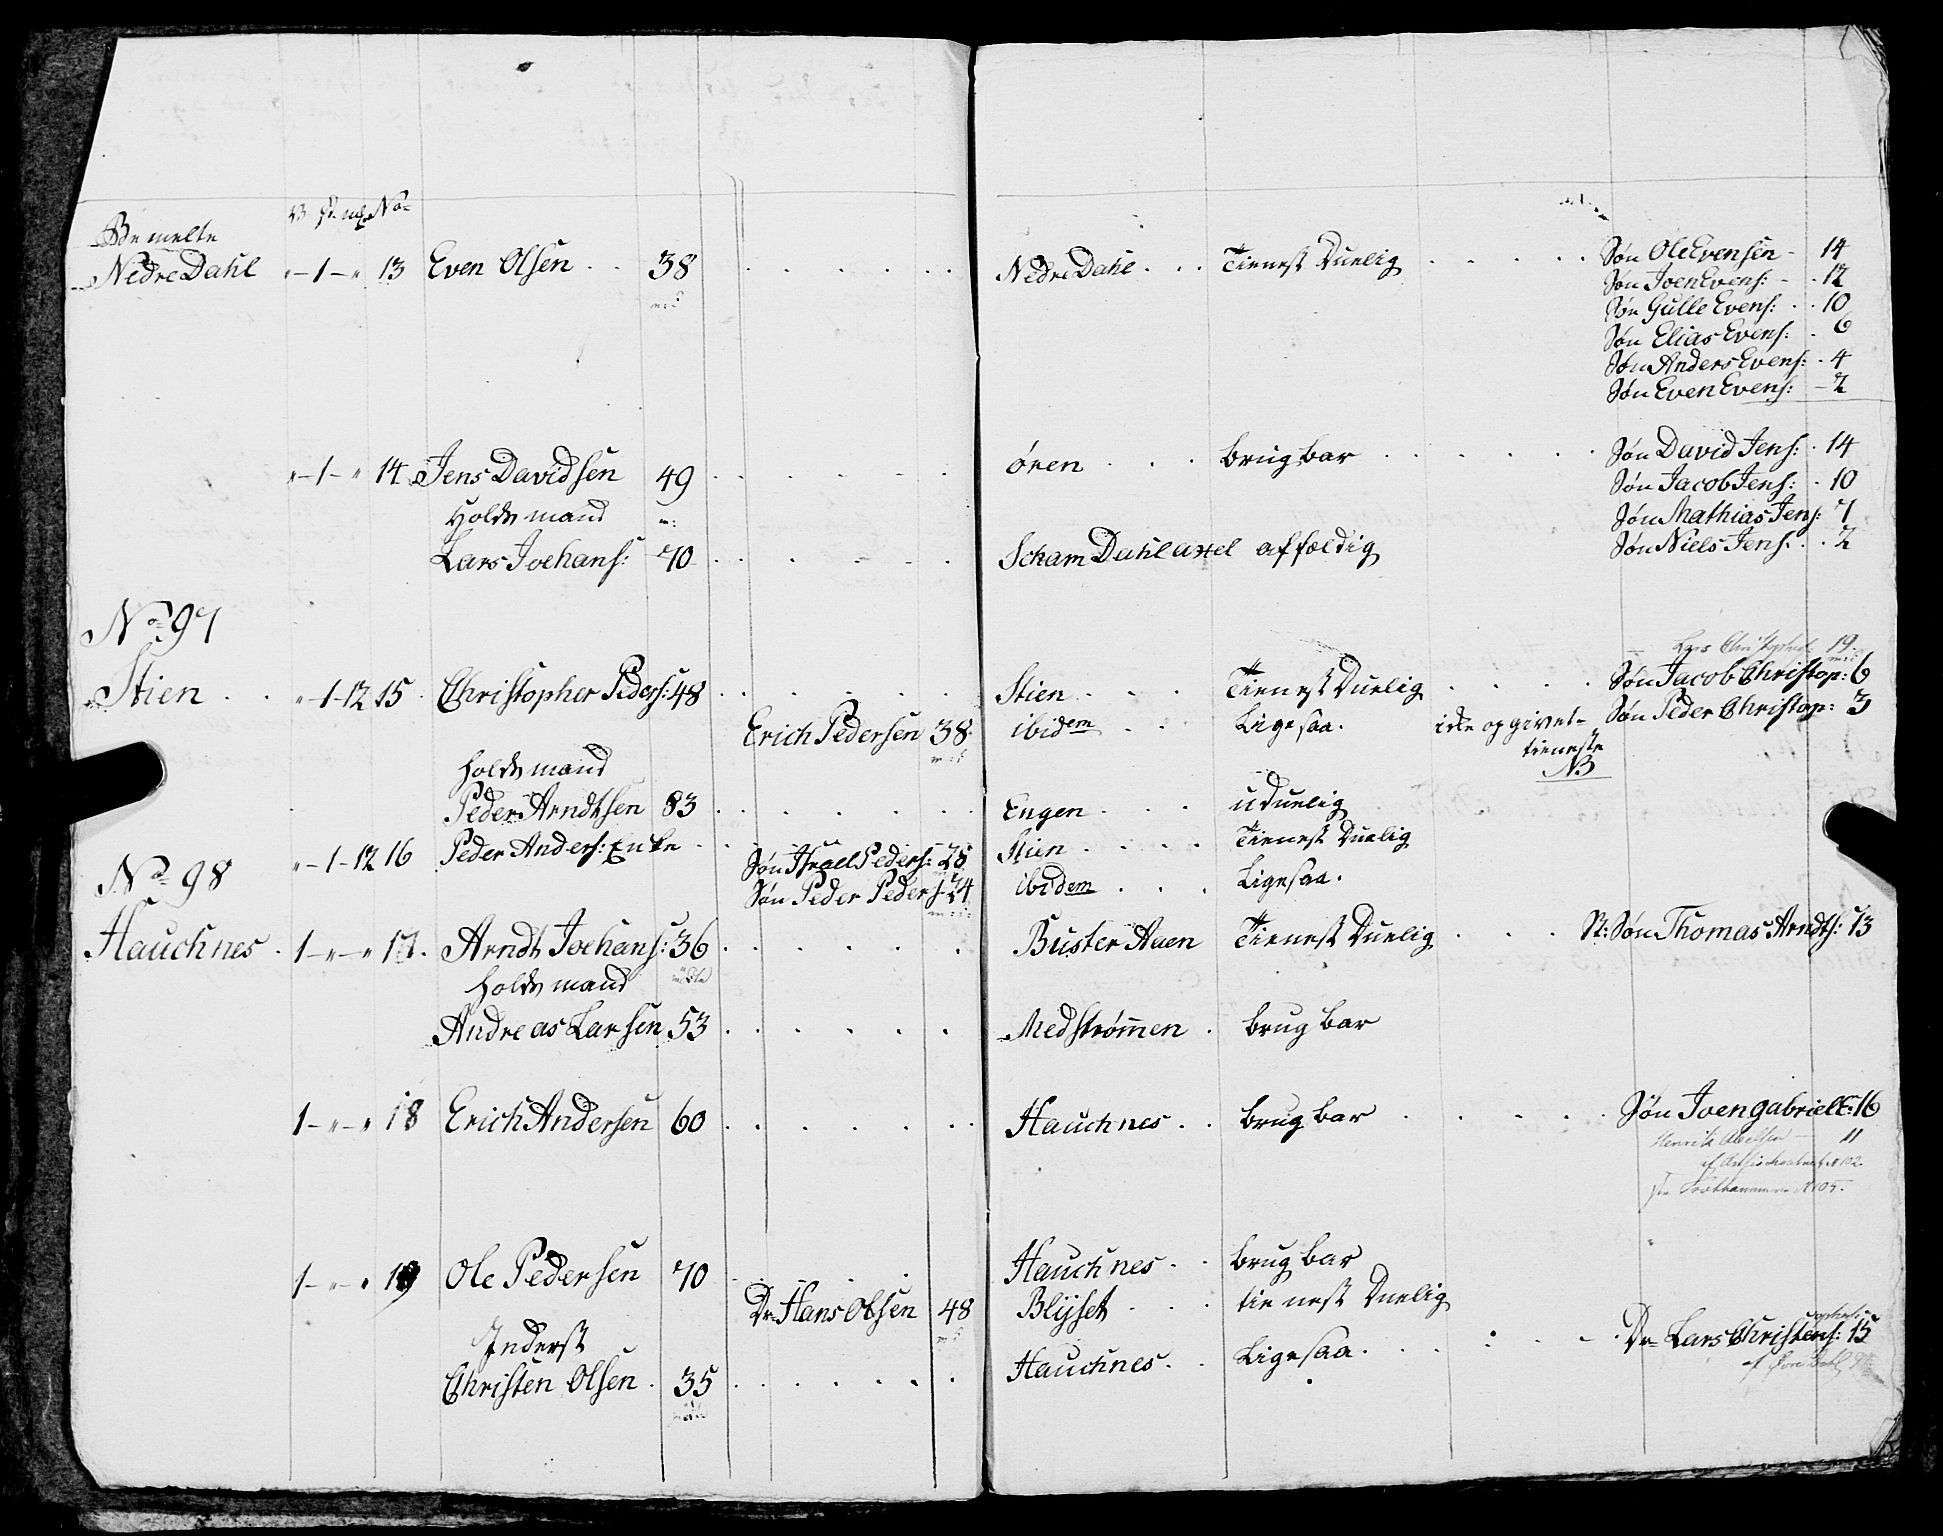 Bemelte No=
Nedre Dahl "-1-" 13 Even Olsen . . 38 . . . . . . Nedre Dahl . . . Tienest Duelig . . . . . Søn Ole Evensen - 14
Søn Joen Evens: - . 12
Søn Gulle Evens: . . 10
Søn Elias Evens: . 6
Søn Anders Evens: . 4
Søn Even Evens: - 2
"-1-" 14 Jens Davidsen 49 . . . . . . øren . . . brugbar . . . . . . Søn David Jens: . 14
Søn Jacob Jens: . 10
Holds mand Søn Mathias Jens: 7
Lars Joehans: 70 . . . . . . Scham Dahl axel affældig Søn Niels Jens: . . 2
No= 97
Lars Christophers: 19
Stien . . "-1-12 15 . Christopher Peders: 48 . . . . . . Stien . . . Tienest Duelig . . . . Søn Jacob Christop: 6
Erich Pedersen 38 ibidem . . Ligesaa . ikke opgivet- Søn Peder Christop: 3
tieneste
NB
Holds mand
Peder Arndtsen 83 . . . . . . Engen . . . uduelig
"-1-12 16 Peder Anders: Enke . . . . Stien . . . . Tienest Duelig
Søn Peders: 28
No= 98 Søn Peder Peders: 24 ibidem . . . Ligesaa .
Hauchnes . 1-"-" 17 . Arndt Joehans: 36 . . . . . . Buster Aaen Tienest Duelig . . . St: Søn Thomas Arndts: 13
Holds mand
Andreas Larsen 53 . . . . . . Medstrømen . brugbar
1-"-" 18 Erich Andersen 60 . . . . . . Hauchnes . . brugbar . . . . . Søn Joen gabriels: 16
Henrik 11
1-"-" 19 Ole Pedersen 70 . . . . Hauchnes . . brugbar
Dr= Hans Olsen 48 Blijset . . . tienest Duelig
Inderst
Christen Olsen . 35 . . . . . . Hauchnes . . Ligesaa . . . . . Dr= Lars Christens: 15